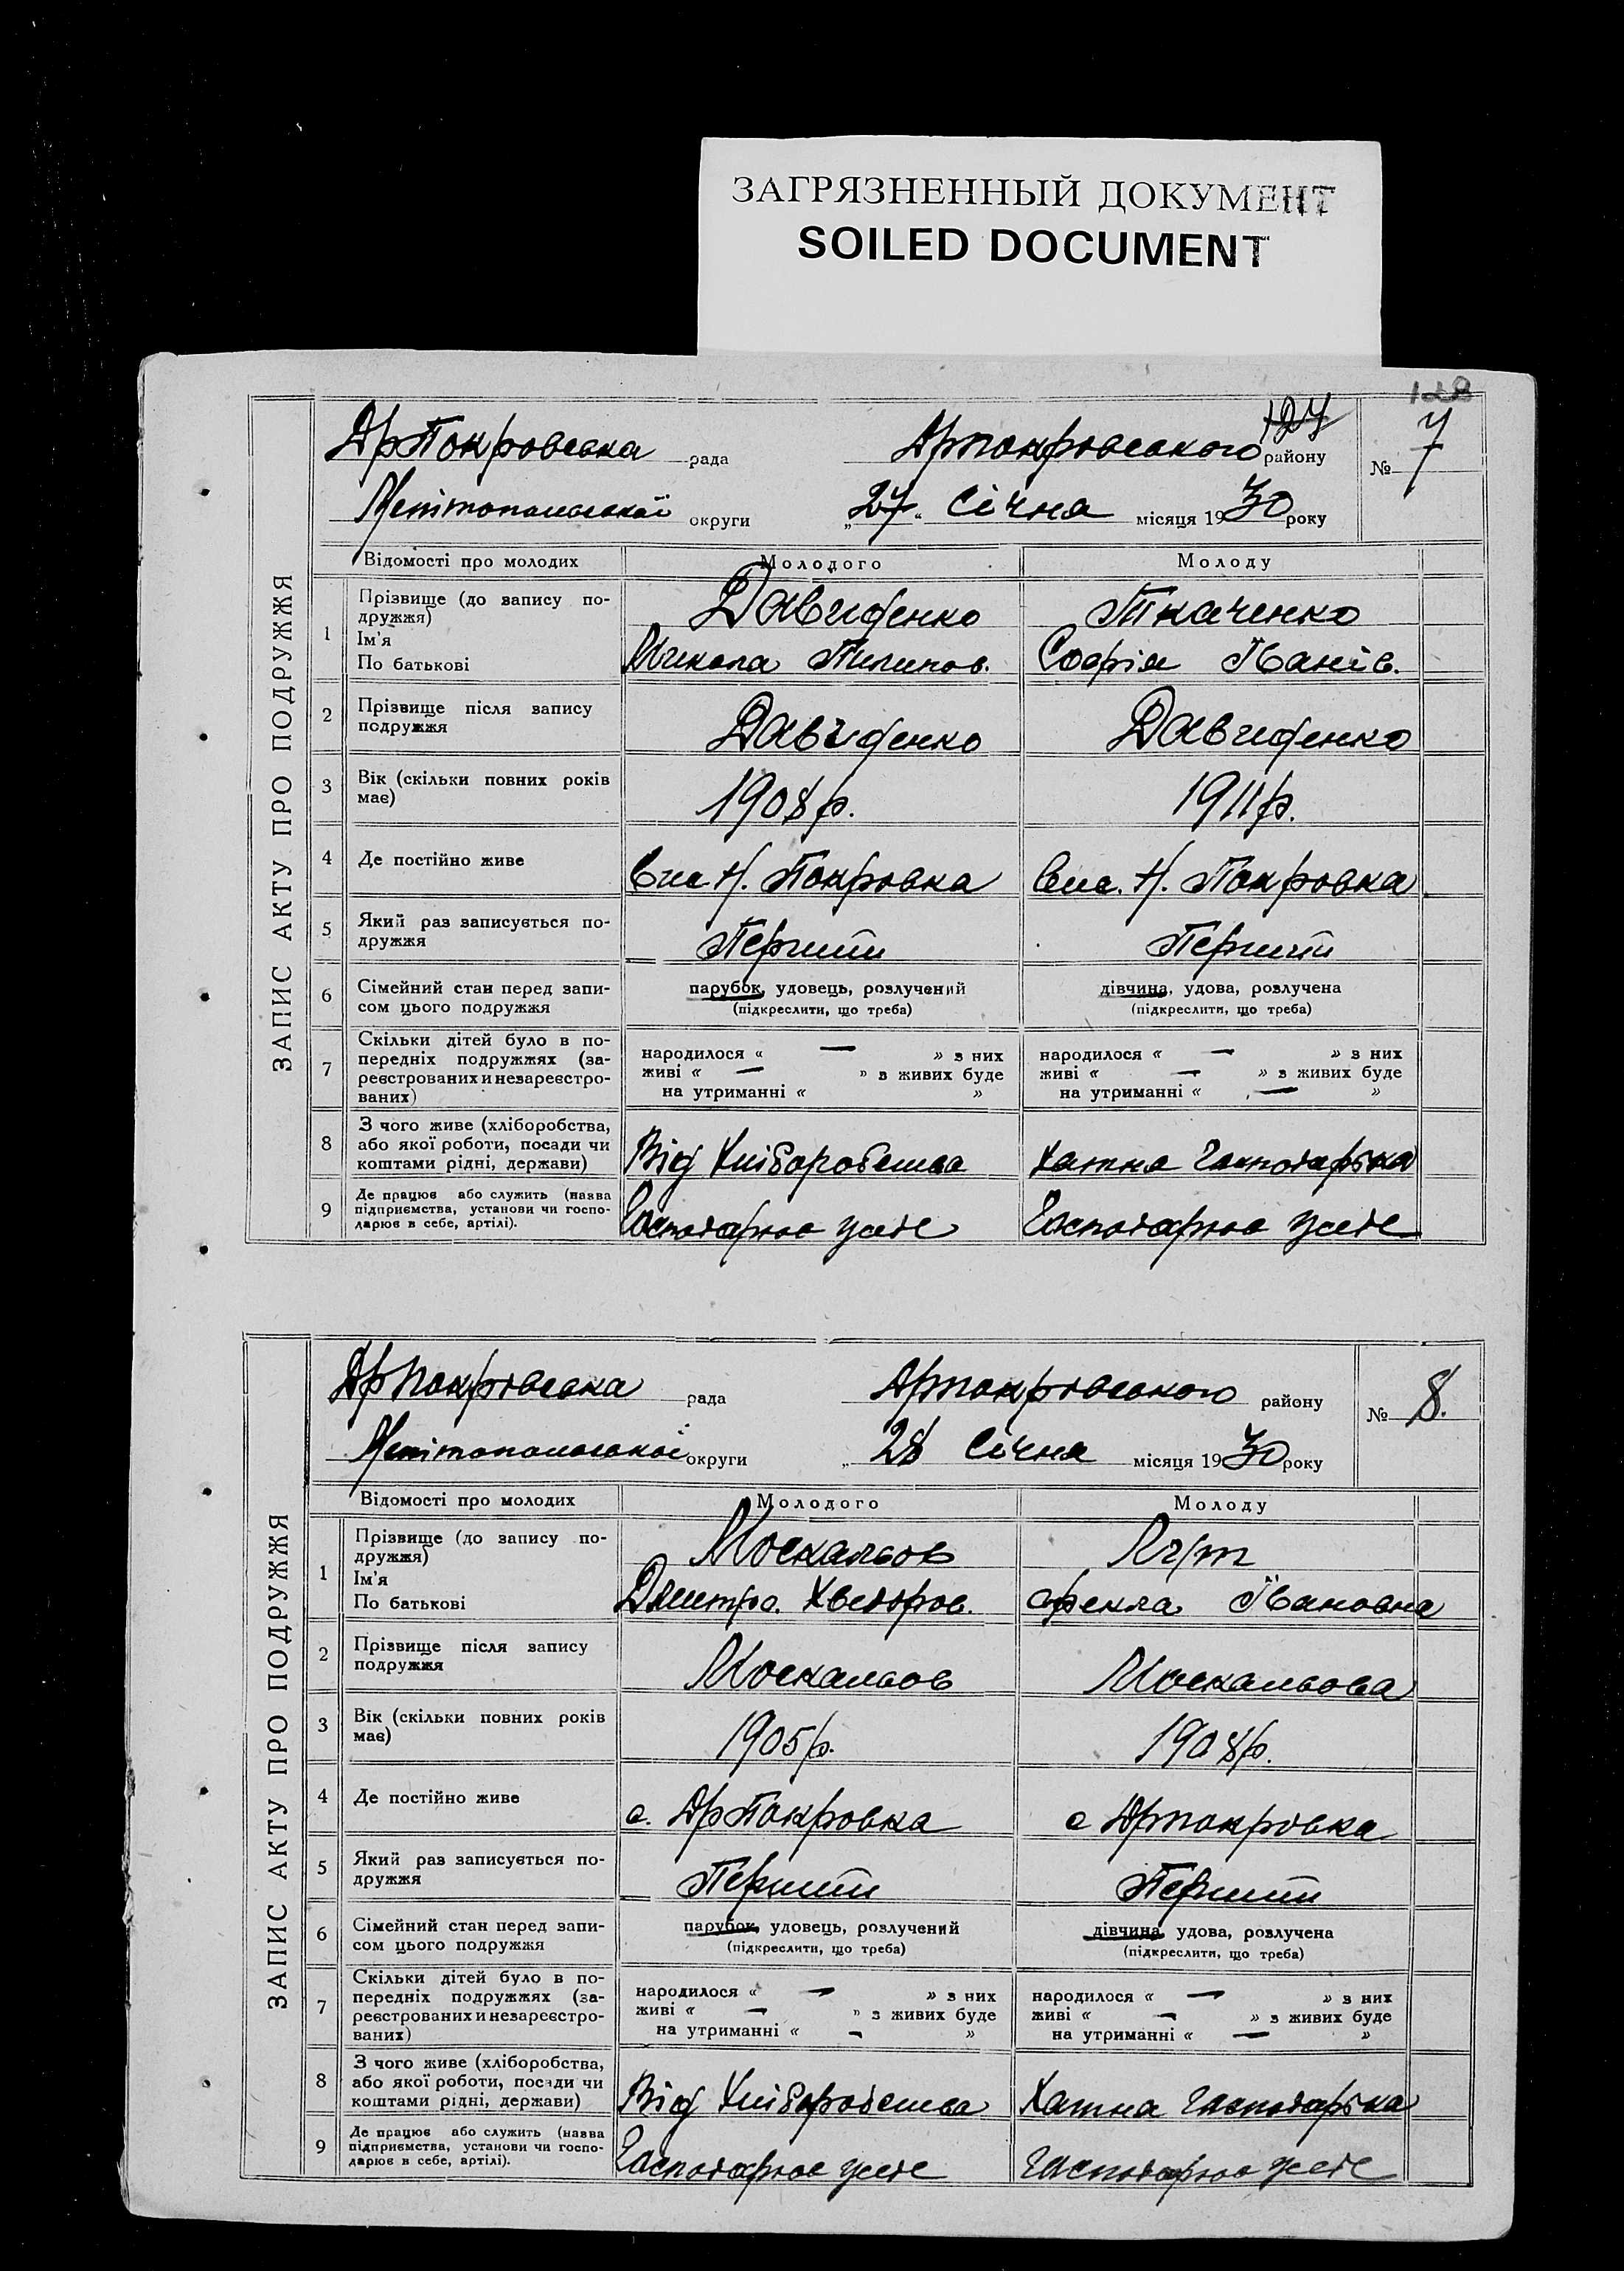 ЗАГРЯЗНЕННЫЙ ДОКУМЕНТ
SOILED DOCUMENT
128
127
ЗАПИС АКТУ ПРО ПОДРУЖЖЯ
ДрПокровська рада Дрпокровського району № 7
Мелітопольської округи „27“ Січня місяця 1930 року
Відомості про молодих Молодого Молоду
1 Прізвище (до запису по-
дружжя)
Ім'я
По батькові
Давиденко Ткаченко
Микола Пилипов. Софія Іванів.
2 Прізвище після запису
подружжя
Давиденко Давиденко
3 Вік (скільки повних років
має)
1908р. 1911р.
4 Де постійно живе
Вис. Н. Покровка Вис. Н. Покровка
5 Який раз записується по-
дружжя
Перший Перший
6 Сімейний стан перед запи-
сом цього подружжя
парубок, удовець, розлучений дівчина, удова, розлучена
(підкреслити, що треба) (підкреслити, що треба)
7 Скільки дітей було в по-
передніх подружжях (за-
реєстрованих и незареєстро-
ваних)
народилося « — » з них народилося « — » з них
живі « — » з живих буде живі « — » з живих буде
на утриманні « » на утриманні « — »
8 З чого живе (хліборобства,
або якої роботи, посади чи
коштами рідні, держави)
Від Хліборобства Хатня Господарька
9 Де працює або служить (назва
підприємства, установи чи госпо-
дарює в себе, артілі).
Господарює у себе Господарює у себе
ЗАПИС АКТУ ПРО ПОДРУЖЖЯ
ДрПокровська рада Дрпокровського району № 8.
Мелітопольської округи „28 Січня місяця 1930 року
Відомості про молодих Молодого Молоду
1 Прізвище (до запису по-
дружжя)
Ім'я
По батькові
Москальов
Дмитро. Хведоров. Фекла Івановна
2 Прізвище після запису
подружжя
Москальов Москальова
3 Вік (скільки повних років
має)
1905р. 1908р.
4 Де постійно живе
с. ДрПокровка с Дрпокровка
5 Який раз записується по-
дружжя
Перший Перший
6 Сімейний стан перед запи-
сом цього подружжя
парубок, удовець, розлучений дівчина, удова, розлучена
(підкреслити, що треба) (підкреслити, що треба)
7 Скільки дітей було в по-
передніх подружжях (за-
реєстрованих и незареєстро-
ваних)
народилося « — » з них народилося « — » з них
живі « — » з живих буде живі « — » з живих буде
на утриманні « - » на утриманні « — »
8 З чого живе (хліборобства,
або якої роботи, посади чи
коштами рідні, держави)
Від Хліборобства Хатня Господарька
9 Де працює або служить (назва
підприємства, установи чи госпо-
дарює в себе, артілі).
Господарює у себе Господарює у себе